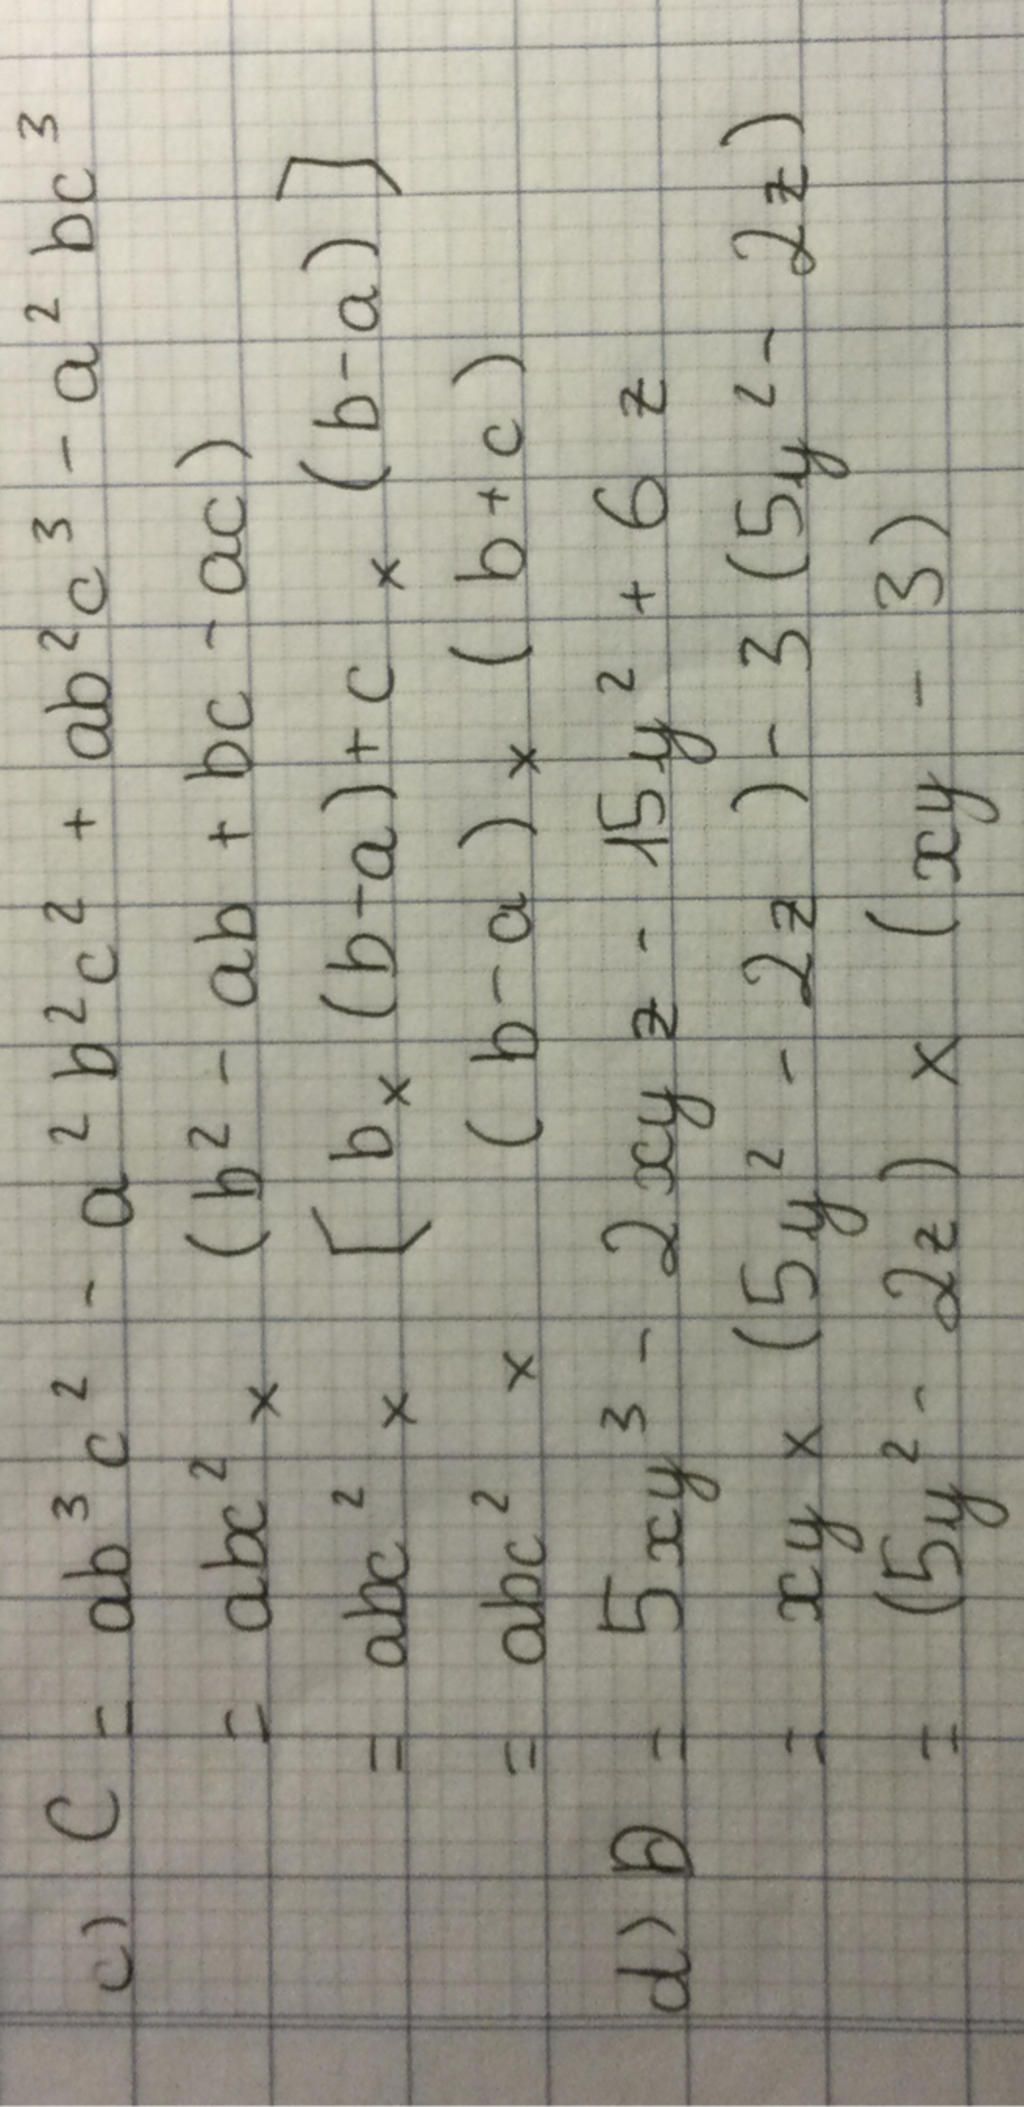 c) C = ab³c² - a²b²c² + ab²c³ - a²bc³
= abc² × (b² - ab + bc - ac)
= abc² × [b × (b-a) + c × (b-a)]
= abc² × (b-a) × (b+c)
d) D = 5xy³ - 2xyz - 15y² + 6z
= xy × (5y² - 2z) - 3(5y² - 2z)
= (5y² - 2z) × (xy - 3)